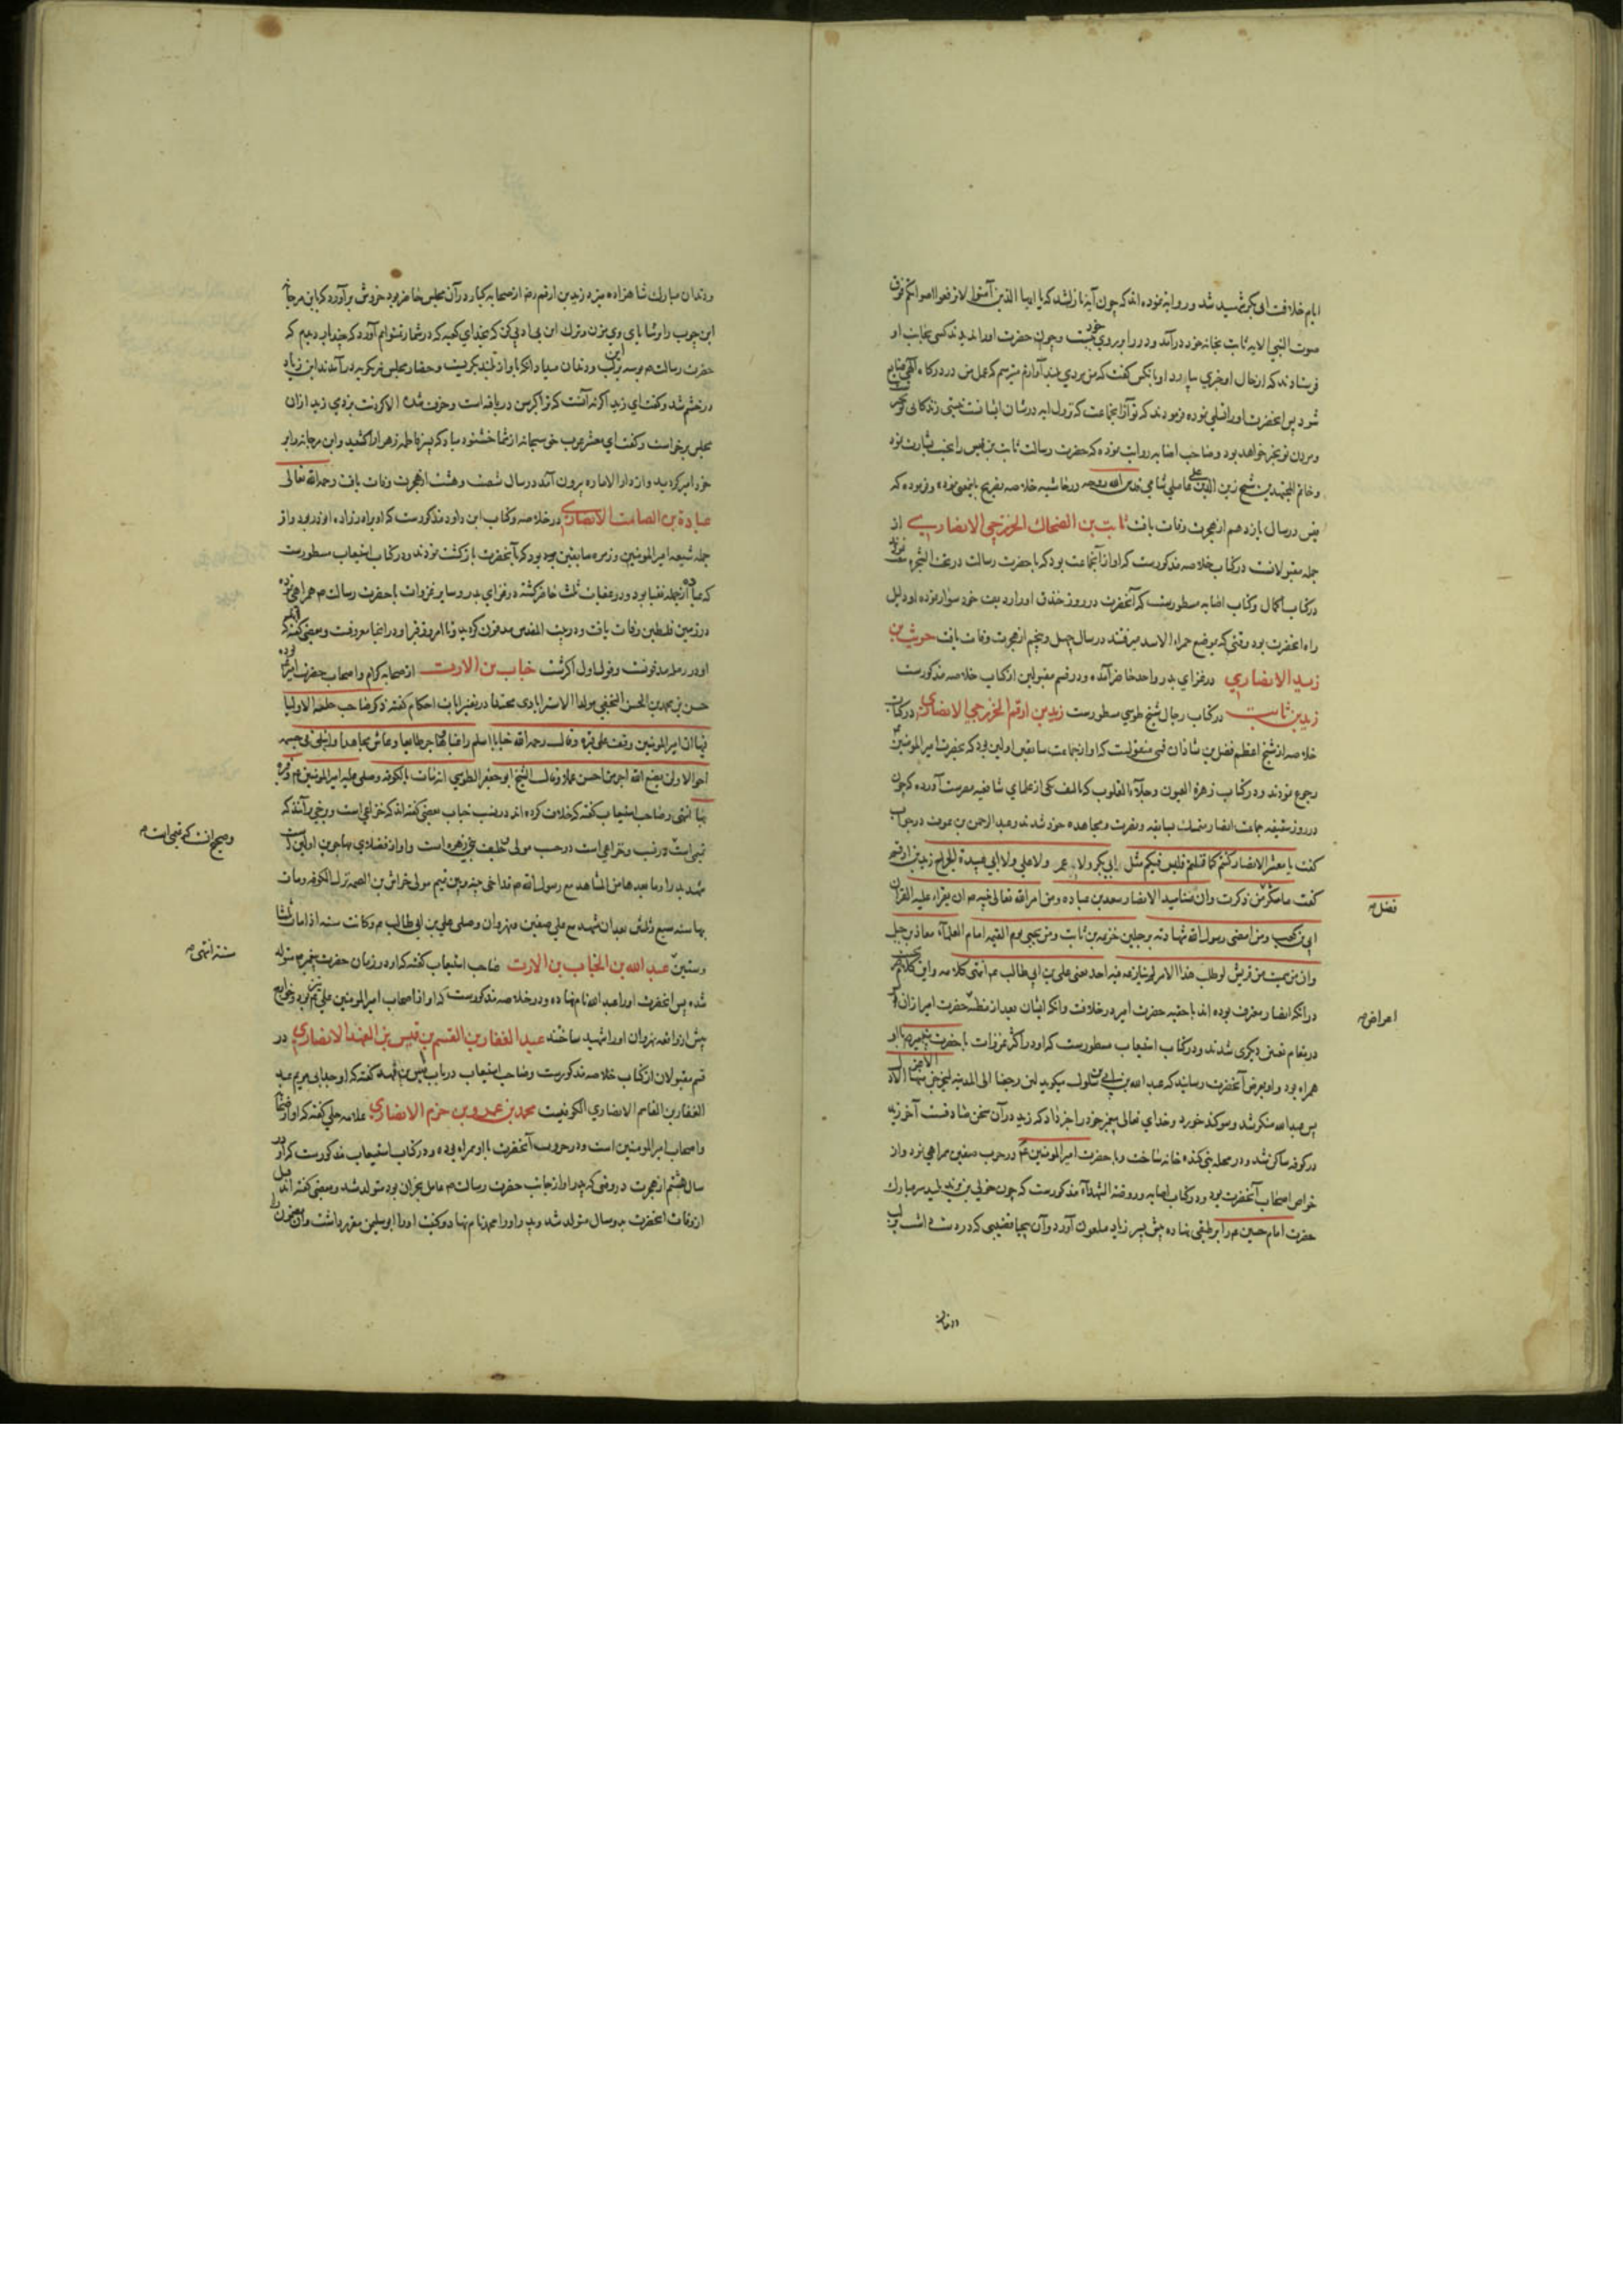 ایام خلافت ابی بکر شهید شد و روایة نموده اند که چون آیه نازل شد که یا ایها الذین آمنوا لا ترفعوا اصواتکم فوق
صوت النبی الایه ثابت بخانه خود درآمد و در را بر روی خود بست و چون حضرت او را ندیدند کسی بجانب او
فرستادند که از حال او خبری بیارد او با آنکس گفت که من مردی بلند آوازم میترسم که عمل من در درکاه الهی ضایع
شود پس آنحضرت او را تسلی نموده فرمودند که تو از آن جماعت که نزول ایه در شان ایشانست نیستی زندکانی تو بخیر
و مردن تو بخیر خواهد بود و صاحب اصابه روایت نموده که حضرت رسالت ثابت بن قیس را بجنت بشارت نمود
و خاتم المجتهدین شیخ زین الدین علی عاملی شامی قدس الله روحه در حاشیه خلاصه تصریح باینمعنی نموده و فرموده که
در سال یازدهم از هجرت وفات یافت ثابت بن الضحاک الخزرجی الانصاری از
جمله مقبولانست در کتاب خلاصه مذکورست که او از آنجماعت بود که با حضرت رسالت در تحت الشجره بیعت نمودند
در کتاب اکمال و کتاب اصابه مسطورست که آنحضرت در روز خندق او را ردیف خود سوار نموده او دلیل
راه آنحضرت بود وقتی که بموضع حمراء الاسد میرفتند در سال چهل و پنجم از هجرت وفات یافت حویرث بن
زید الانصاری در غزای بدر و احد حاضر آمده و در قسم مقبولین از کتاب خلاصه مذکورست
زید بن ثابت در کتاب رجال شیخ طوسی مسطورست زید بن ارقم الخزرجی الانصاری در کتاب
خلاصه از شیخ اعظم فضل بن شاذان قمی منقولست که او از آنجماعت سابقین اولین بود که بحضرت امیر المومنین
رجوع نمودند و در کتاب زهرة العیون و جلاء القلوب که تالیف یکی از علمای شافعیه مصرست آورده که چون
در روز سقیفه جماعت انصار متمسک بسابقه و نصرت و مجاهده خود شدند و عبد الرحمن بن عوف در جواب
گفت یا معشر الانصار کنتم کما قلتم فلیس فیکم مثل ابی بکر ولا عمر ولا علی ولا ابی عبیدة الجراح زید بن ارقم
گفت ما ننکر من ذکرت وان منا سید الانصار سعد بن عباده ومن امر الله تعالی نبیه ان یقراء علیه القران
ابی بن کعب ومن امضی رسول الله شهادته برجلین خزیمة بن ثابت ومن یجیی یوم القیمه امام العلماء معاذ بن جبل
وان من سمیت من قریش لو طلب هذا الامر لم ینازعه فیه احد یعنی علی بن ابی طالب انتهی کلامه و این کلام
در انکه انصار معترف بوده اند باحقیه حضرت امیر در خلافت و انکه ایشان بعد از مظنه حضرت امیر از ان
در مقام تعیین دیکری شدند و در کتاب استیعاب مسطورست که او در اکثر غزوات با حضرت پیغمبر
همراه بود و او بعرض آنحضرت رسانید که عبد الله بن ابی بن سلول میکوید لئن رجعنا الی المدینه لیخرجن الاعز منها الاذل
پس عبد الله منکر شد و سوکند خورد و خدای تعالی پیغمبر خود را خبر داد که زید در آن سخن صادقست آخر زید
در کوفه ساکن شد و در محله بنی کنده خانه ساخت و با حضرت امیر المومنین در حرب صفین همراهی نمود و از
خواص اصحاب آنحضرت بود و در کتاب اصابه و روضة الشهداء مذکورست که چون خولی بن یزید پلید سر مبارک
حضرت امام حسین را بر طبقی نهاده پیش پسر زیاد ملعون آورد و آن بیحیا قضیبی که در دست داشت بر لب
فضل
اعراض
و دندان مبارک شاهزاده میزد زید بن ارقم که از صحابه کبار در آن مجلس حاضر بود خروش برآورد که یابن مرجانه
حضرت رسالت بوسه برین لب و دندان میداد انکه با واز بلند بکریست و حضار مجلس نیز بکریه درآمدند ابن زیاد
در خشم شد و گفت ای زید
مجلس برخواست و گفت ای معشر عرب حق سبحانه از شما خشنود مباد که پسر فاطمه زهرا را کشتید و ابن مرجانه را بر
خود امیر کردید و از دار الاماره بیرون آمد در سال شصت و هشت از هجرت وفات یافت رحمه الله تعالی
عبادة بن الصامت الانصاری در خلاصه و کتاب ابن داود مذکورست که او برادرزاده ابوذر بود و از
جمله شیعه امیر المومنین و زمره سابقین بود که بآنحضرت بازگشت نمودند و در کتاب استیعاب مسطورست
که عباده از جمله نقبا بود و در عقبات ثلث حاضر گشته در غزای بدر و سایر غزوات با حضرت رسالت همراهی نموده
در زمین فلسطین وفات یافت و در بیت المقدس مدفون گردید و تا امروز قبر او در انجا معروفست و بعضی گفته اند که
او در رمله مدفونست و قول اول اکثرست خباب بن الارت از صحابه کرام و اصحاب حضرت امیر بوده
حسن بن محمد بن الحسن النجفی مولدا الاسترابادی محتدا در تفسیر ایات احکام گفته ذکر صاحب حلیة الاولیا
فیها ان امیر المومنین وقف علی قبره وقال رحم الله خبابا اسلم راغبا وهاجر طایعا وعاش مجاهدا وابتلی فی جسمه
احوالا ولن یضیع الله اجر من احسن عملا وقال الشیخ ابو جعفر الطوسی انه مات بالکوفه وصلی علیه امیر المومنین وقبره
بها انتهی و صاحب استیعاب گفته که خلاف کرده اند در نسب خباب بعضی گفته اند که خزاعیست و برخی برآنند که
تمیمی است در نسب و خزاعی است
شهد بدرا وما بعدها من المشاهد مع رسول الله
بها سنه سبع وثلثین بعد ان شهد مع علی صفین ونهروان وصلی علی بن ابی طالب وکانت سنه اذا مات ثلثا
وستین عبد الله بن الخباب بن الارت صاحب استیعاب گفته که او در زمان حضرت پیغمبر متولد
شده پس آنحضرت او را عبد الله نام نهاده و در خلاصه مذکورست که او از اصحاب امیر المومنین علی نیز بود و خوارج
پیش از واقعه نهروان او را شهید ساختند عبد الغفار بن القسم بن قیس بن الفهد الانصاری در
قسم مقبولان از کتاب خلاصه مذکورست و صاحب استیعاب در باب قیس بن قهد گفته که او جد ابی مریم عبد
الغفار بن القاسم الانصاری الکوفیست محمد بن عمرو بن حزم الانصاری علامه حلی گفته که او از
و اصحاب امیر المومنین است و در حروب آنحضرت با او همراه بوده و در کتاب استیعاب مذکورست که او در
سال هشتم از هجرت در وقتی که پدر او از جانب حضرت رسالت عامل نجران بود متولد شد و بعضی گفته اند قبل
از وفات آنحضرت بدو سال متولد شد و پدر او را محمد نام نهاد و کنیت او را ابو سلیمن مقرر داشت و آن
و صحیح انست که تمیمی است
سنة انتهی